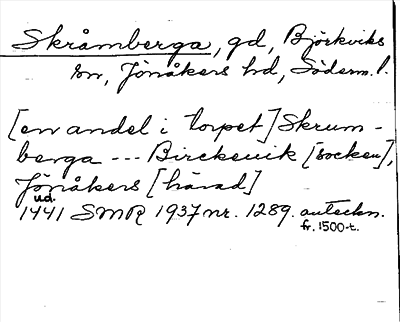 Skråmberga, gd, Björkviks
sn, Jönåkers hd, Söderm. l.
[en andel i torpet] Skrum-
berga --- Birckeuik [socken],
Jönåkers [härad]
ud.
1441 SMR 1937 nr. 1289. anteckn.
fr. 1500-t.